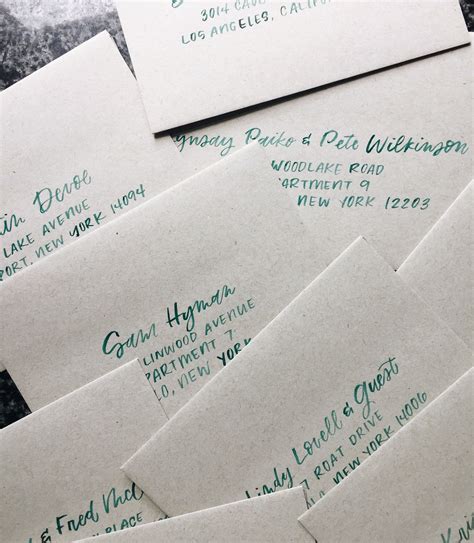 3014
LOS ANGELES,
Paiko & Pete Wilkinson
WOODLAKE ROAD
ARTMENT 9
NEW YORK 12203
tin Devoe
LAKE AVENUE
PORT, NEW YORK 14094
Sam Hyman
LINWOOD AVENUE
PARTMENT 7
LO, NEW YORK
Lindy Lovell & Guest
7 ROAT DRIVE
NEW YORK 14006
& Fred
PLACE